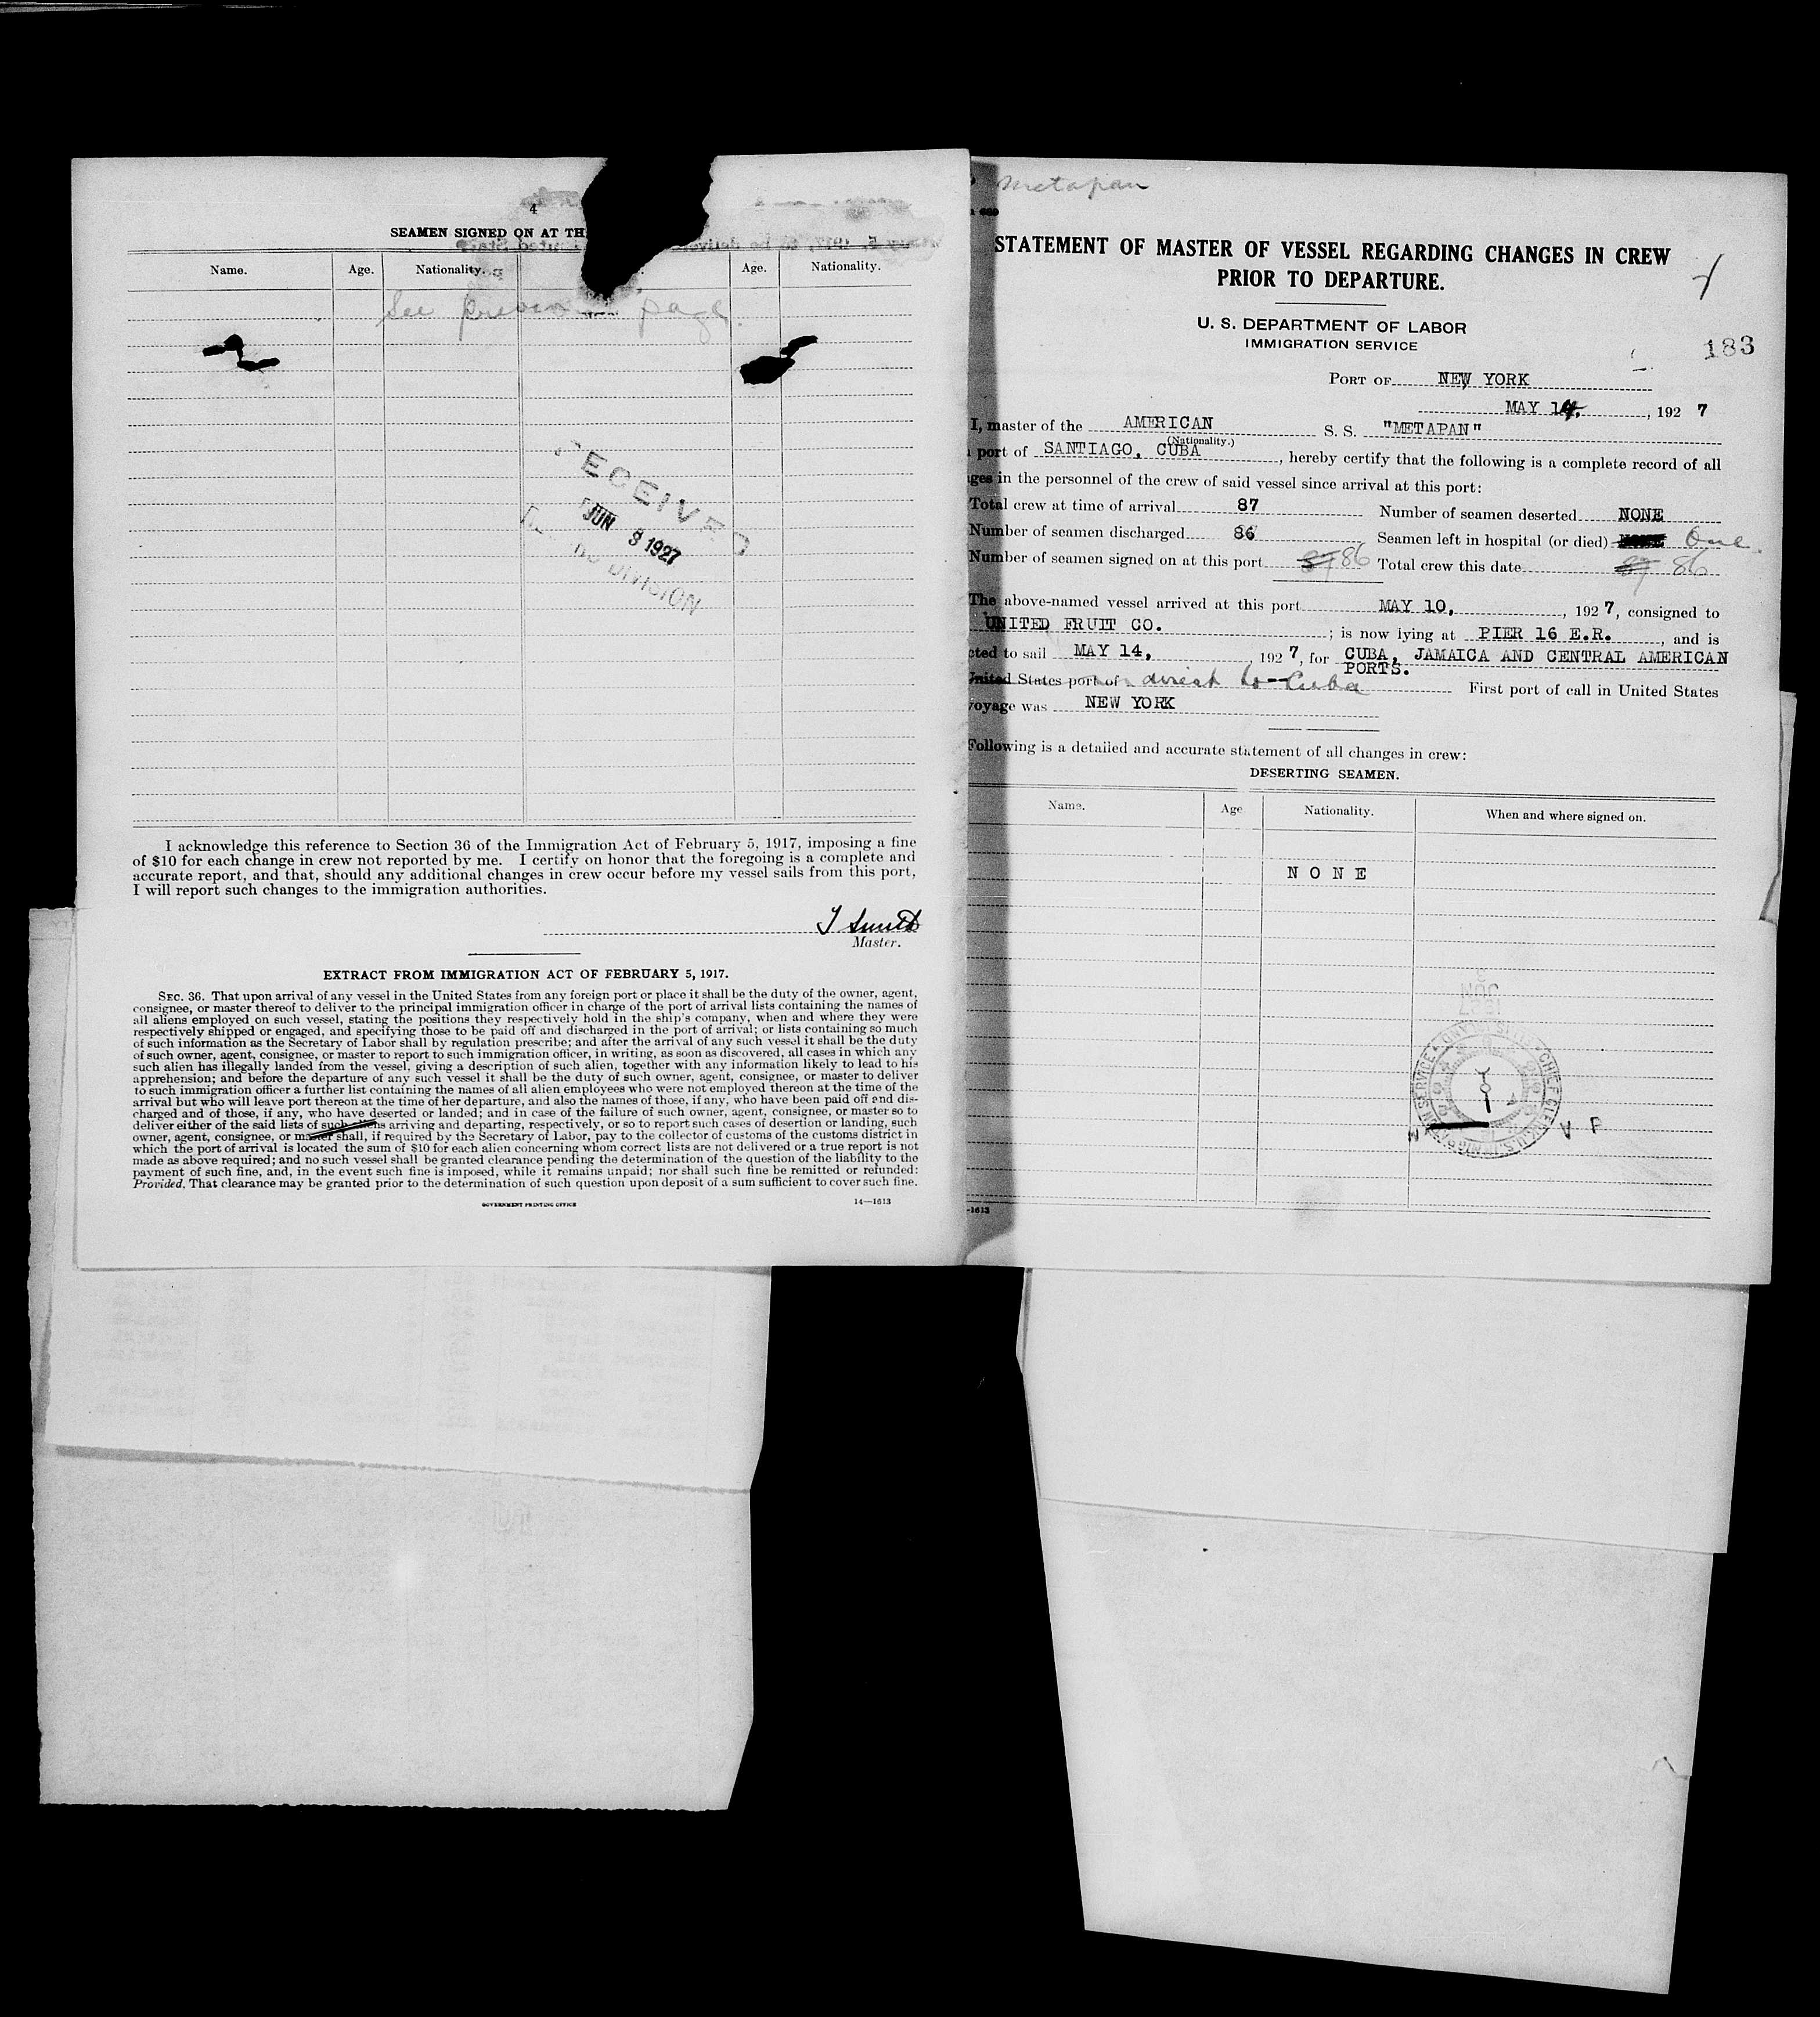 4
SEAMEN SIGNED ON AT TH
Name. Age. Nationality. Age. Nationality.
See page.
RECEIVED
JUN 3 1927
DIVISION
I acknowledge this reference to Section 36 of the Immigration Act of February 5, 1917, imposing a fine
of $10 for each change in crew not reported by me. I certify on honor that the foregoing is a complete and
accurate report, and that, should any additional changes in crew occur before my vessel sails from this port,
I will report such changes to the immigration authorities.
Smith
Master.
EXTRACT FROM IMMIGRATION ACT OF FEBRUARY 5, 1917.
SEC. 36. That upon arrival of any vessel in the United States from any foreign port or place it shall be the duty of the owner, agent,
consignee, or master thereof to deliver to the principal immigration officer in charge of the port of arrival lists containing the names of
all aliens employed on such vessel, stating the positions they respectively hold in the ship's company, when and where they were
respectively shipped or engaged, and specifying those to be paid off and discharged in the port of arrival; or lists containing so much
of such information as the Secretary of Labor shall by regulation prescribe; and after the arrival of any such vessel it shall be the duty
of such owner, agent, consignee, or master to report to such immigration officer, in writing, as soon as discovered, all cases in which any
such alien has illegally landed from the vessel, giving a description of such alien, together with any information likely to lead to his
apprehension; and before the departure of any such vessel it shall be the duty of such owner, agent, consignee, or master to deliver
to such immigration officer a further list containing the names of all alien employees who were not employed thereon at the time of the
arrival but who will leave port thereon at the time of her departure, and also the names of those, if any, who have been paid off and dis-
charged and of those, if any, who have deserted or landed; and in case of the failure of such owner, agent, consignee, or master so to
deliver either of the said lists of such aliens arriving and departing, respectively, or so to report such cases of desertion or landing, such
owner, agent, consignee, or master shall, if required by the Secretary of Labor, pay to the collector of customs of the customs district in
which the port of arrival is located the sum of $10 for each alien concerning whom correct lists are not delivered or a true report is not
made as above required; and no such vessel shall be granted clearance pending the determination of the question of the liability to the
payment of such fine, and, in the event such fine is imposed, while it remains unpaid; nor shall such fine be remitted or refunded:
Provided, That clearance may be granted prior to the determination of such question upon deposit of a sum sufficient to cover such fine.
GOVERNMENT PRINTING OFFICE 14—1613
Metapan
689
STATEMENT OF MASTER OF VESSEL REGARDING CHANGES IN CREW
PRIOR TO DEPARTURE.
U. S. DEPARTMENT OF LABOR
IMMIGRATION SERVICE
183
PORT OF NEW YORK
MAY 14, 1927
I, master of the AMERICAN S. S. "METAPAN"
(Nationality.)
port of SANTIAGO, CUBA, hereby certify that the following is a complete record of all
ges in the personnel of the crew of said vessel since arrival at this port:
Total crew at time of arrival 87 Number of seamen deserted NONE
Number of seamen discharged 86 Seamen left in hospital (or died) NONE One.
Number of seamen signed on at this port 87 86 Total crew this date 87 86
The above-named vessel arrived at this port MAY 10, 1927, consigned to
UNITED FRUIT CO. ; is now lying at PIER 16 E.R., and is
cted to sail MAY 14, 1927, for CUBA, JAMAICA AND CENTRAL AMERICAN
PORTS.
United States port of direct to Cuba First port of call in United States
voyage was NEW YORK
Following is a detailed and accurate statement of all changes in crew:
DESERTING SEAMEN.
Name. Age Nationality. When and where signed on.
NONE
-1613